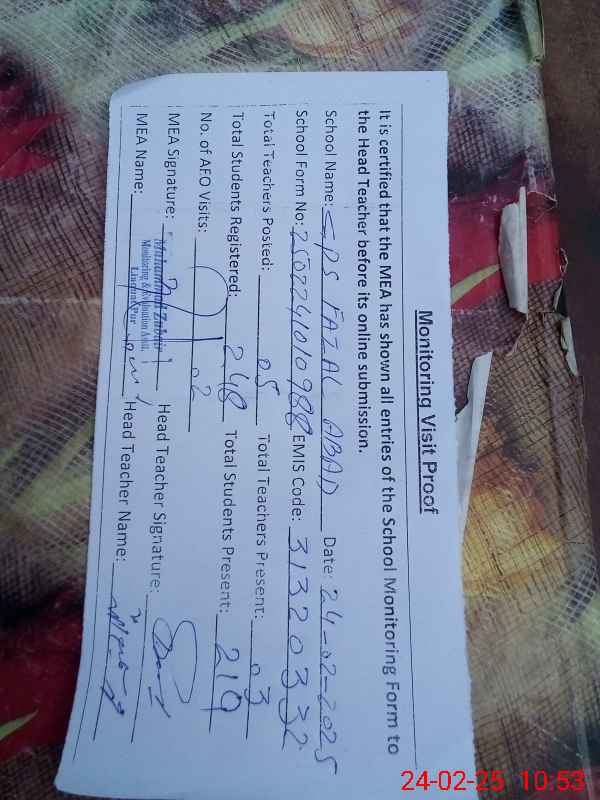 Monitoring Visit Proof
It is certified that the MEA has shown all entries of the School Monitoring Form to
the Head Teacher before its online submission.
School Name: GPS FAZAL ABAD Date: 24-02-2025
School Form No: 250224010988 EMIS Code: 31320332
Total Teachers Posted: 05 Total Teachers Present: 03
Total Students Registered: 248 Total Students Present: 219
No. of AEO Visits: 02
MEA Signature: Head Teacher Signature:
Muhammad Zubair
Monitoring & Evaluation Asstt.
MEA Name: Head Teacher Name:
24-02-25 10:53